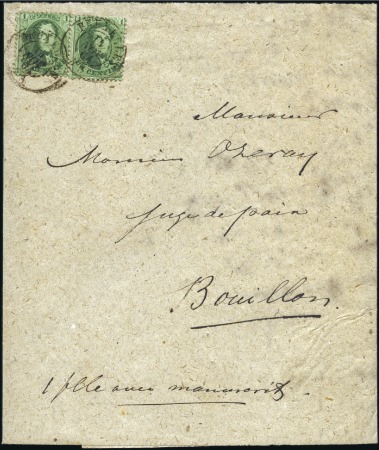 Monsieur
Monsieur Ozeray
Juge de paix
Bouillon
1 flle avec manuscrit